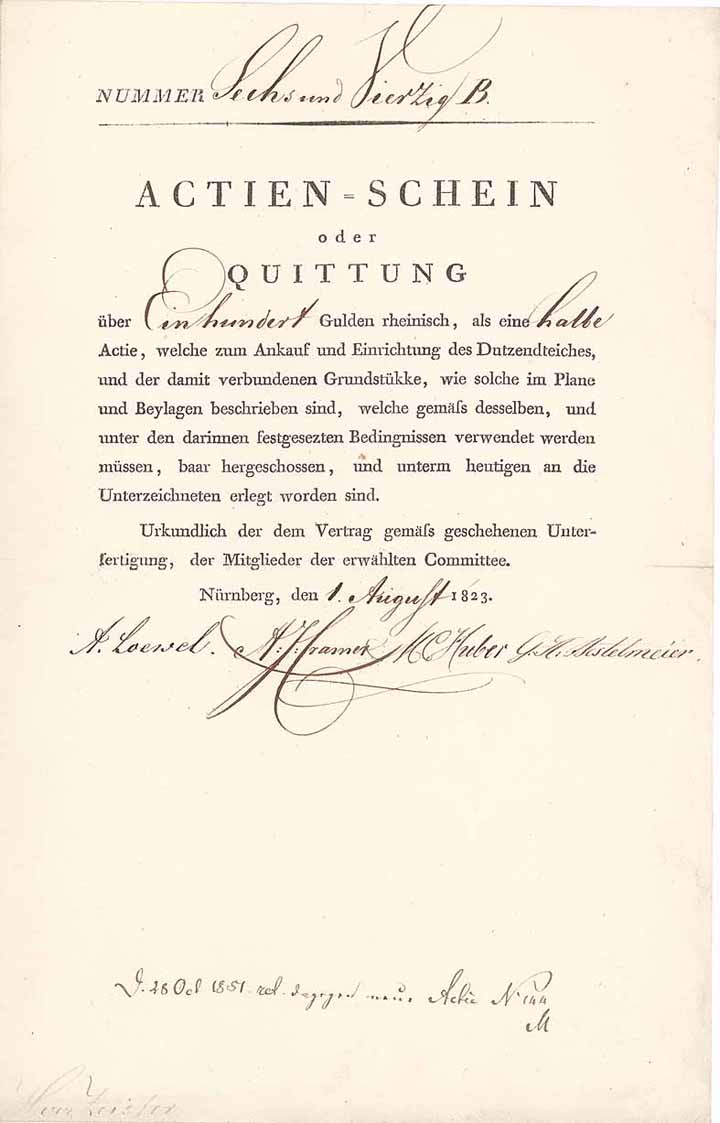 NUMMER Sechs und Vierzig B.
ACTIEN = SCHEIN
oder
QUITTUNG
über Einhundert Gulden rheinisch, als eine halbe
Actie, welche zum Ankauf und Einrichtung des Dutzendteiches,
und der damit verbundenen Grundstükke, wie solche im Plane
und Beylagen beschrieben sind, welche gemäſs desselben, und
unter den darinnen festgesezten Bedingnissen verwendet werden
müssen, baar hergeschossen, und unterm heutigen an die
Unterzeichneten erlegt worden sind.
Urkundlich der dem Vertrag gemäſs geschehenen Unter-
fertigung, der Mitglieder der erwählten Committee.
Nürnberg, den 1. August 1823.
A. Loewel. A. J. Cramer MC Huber G. H. Bestelmeier.
D. 28 Oct 1851 ret. dagegen neue Actie N
M